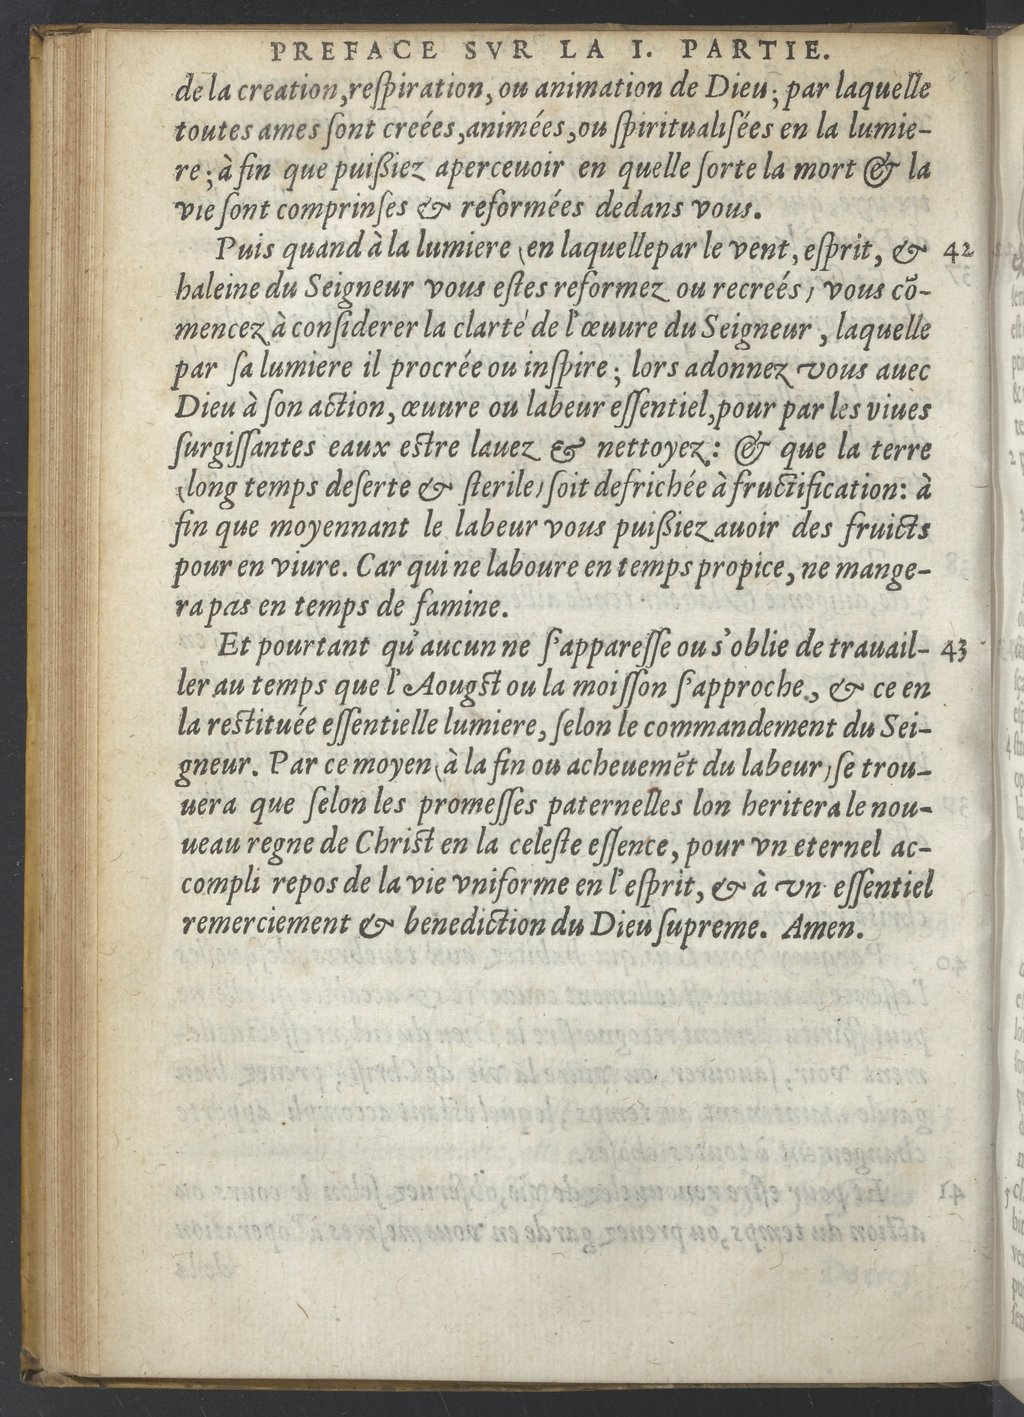 PREFACE SVR LA I. PARTIE.
de la creation, reſpiration, ou animation de Dieu; par laquelle
toutes ames ſont creées, animées, ou ſpiritualiſées en la lumie-
re; à fin que puißiez apercevoir en quelle ſorte la mort & la
vie ſont comprinſes & reformées dedans vous.
Puis quand à la lumiere (en laquelle par le vent, eſprit, & 42
haleine du Seigneur vous eſtes reformez ou recreés) vous cõ-
mencez à conſiderer la clarté de l'œuure du Seigneur, laquelle
par ſa lumiere il procrée ou inſpire; lors adonnez vous auec
Dieu à ſon action, œuure ou labeur eſſentiel, pour par les viues
ſurgiſſantes eaux eſtre lauez & nettoyez: & que la terre
(long temps deſerte & ſterile) ſoit defrichée à fructification: à
fin que moyennant le labeur vous puißiez auoir des fruicts
pour en viure. Car qui ne laboure en temps propice, ne mange-
ra pas en temps de famine.
Et pourtant qu'aucun ne ſ'appareſſe ou s'oblie de trauail- 43
ler au temps que l'Aougſt ou la moiſſon ſ'approche, & ce en
la reſtituée eſſentielle lumiere, ſelon le commandement du Sei-
gneur. Par ce moyen (à la fin ou acheuemẽt du labeur) ſe trou-
uera que ſelon les promeſſes paternelles lon heritera le nou-
ueau regne de Chriſt en la celeſte eſſence, pour vn eternel ac-
compli repos de la vie vniforme en l'eſprit, & à vn eſſentiel
remerciement & benediction du Dieu ſupreme. Amen.